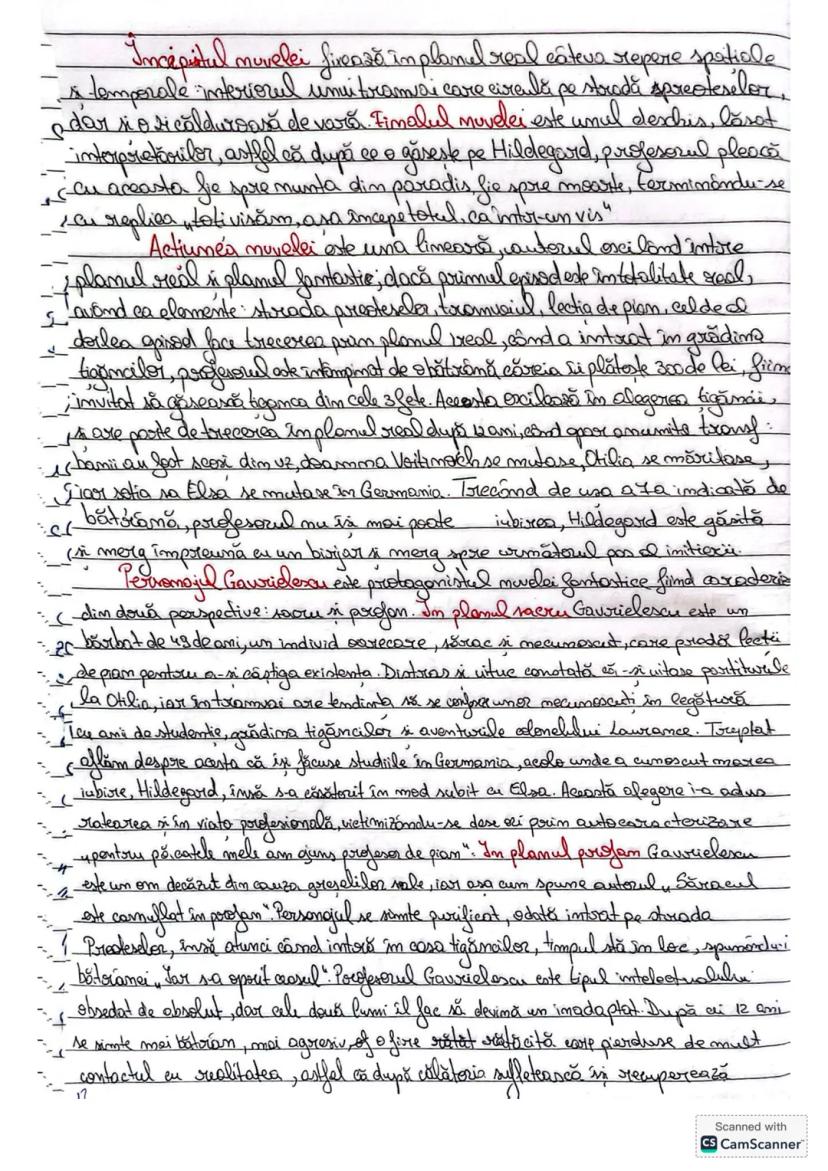 Incipitul nuvelei fixează în planul real câteva repere spațiale
și temporale: interiorul unui tramvai care circulă pe stradă spreoteselor,
dar și o zi călduroasă de vară. Finalul nuvelei este unul deschis, lăsat
interpretărilor, astfel că după ce o găsește pe Hildegard, profesorul pleacă
cu aceasta fie spre nunta din paradis, fie spre moarte, terminându-se
cu replica „toți visăm, așa începe totul. ca într-un vis"
Acțiunea nuvelei este una lineară, autorul oscilând între
planul real și planul fantastic; dacă primul episod este în totalitate real,
având ca elemente: strada preoteselor, tramvaiul, lecția de pian, cel de al
doilea episod face trecerea prin planul ireal, când a intrat în grădina
țigăncilor, profesorul este întâmpinat de o bătrână căreia îi plătește 300 de lei, fiind
invitat să găsească țiganca din cele 3 fete. Acesta oscilează în alegerea țigăncii,
și are parte de trecerea în planul real după 12 ani, când apar anumite transf:
banii au fost scoși din uz, doamna Voitinovici se mutase, Otilia se măritase,
iar soția sa Elsa se mutase în Germania. Trecând de ușa a 7a indicată de
bătrână, profesorul nu își mai poate iubirea, Hildegard este găsită
și merg împreună cu un birjar și merg spre următorul pas al inițierii.
Personajul Gavrielescu este protagonistul nuvelei fantastice fiind caracteriz
din două perspective: sacru și profan. În planul sacru Gavrielescu este un
bărbat de 49 de ani, un individ oarecare, sărac și necunoscut, care predă lecții
de pian pentru a-și câștiga existența. Distras și uituc constată că -și uitase partiturile
la Otilia, iar în tramvai are tendința să se confesa unor necunoscuți în legătură
cu anii de studenție, grădina țigăncilor și aventurile colonelului Laurance. Treptat
aflăm despre acesta că își făcuse studiile în Germania, acolo unde a cunoscut marea
iubire, Hildegard, însă s-a căsătorit în mod subit cu Elsa. Această alegere i-a adus
ratarea și în viața profesională, victimizându-se des ei prin autocaracterizare
„pentru păcatele mele am ajuns profesor de pian". În planul profan Gavrielescu
este un om decăzut din cauza greșelilor sale, iar așa cum spune autorul „Săracul
este camuflat în profan". Personajul se simte purificat, odată intrat pe strada
Preoteselor, însă atunci când intră în casa țigăncilor, timpul stă în loc, spunându-i
bătrânei „Iar s-a oprit ceasul". Porfesorul Gavrielescu este tipul intelectualului
obsedat de absolut, dar cele două lumi îl fac să devină un inadaptat. După cei 12 ani
se simte mai bătrân, mai agresiv, of o fire rătat rătăcită care pierduse de mult
contactul cu realitatea, astfel că după călătoria sufletească își recuperează
17
Scanned with
CS CamScanner